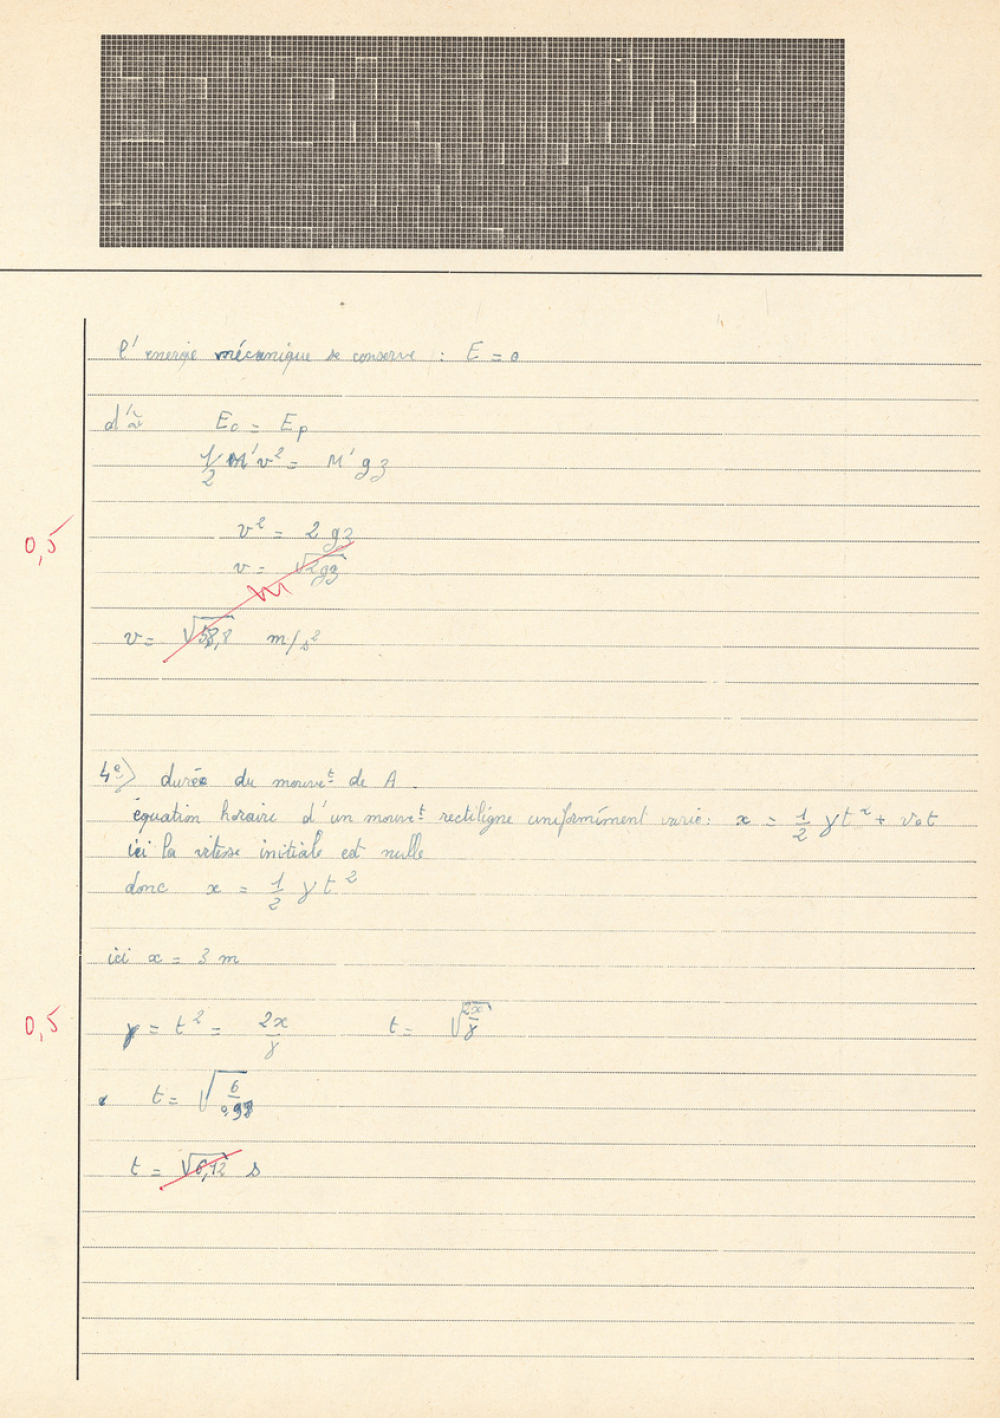 l'énergie mécanique se conserve : E = 0
d'où Ec = Ep
1/2 M'v² = M'gz
v² = 2gz
0,5
v = √2gz
v = √58,8 m/s²
4°) durée du mouveᵗ de A.
équation horaire d'un mouvᵗ rectiligne uniformément varié : x = 1/2 γt² + v₀t
ici la vitesse initiale est nulle
donc x = 1/2 γt²
ici x = 3 m
0,5 γ = t² = 2x/γ t = √2x/γ
t = √6/0,98
t = √6,12 s